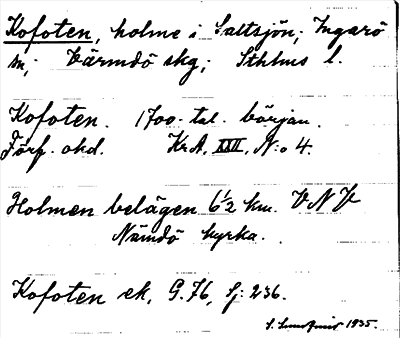 Kofoten, holme i Saltsjön; Ingarö
sn; Värmdö skg; Sthlms l.
Kofoten. 1700-tal. början.
Förf. okd. KrA, XXII, N:o 4.
Holmen belägen 6½ km. VNV
Nämdö kyrka.
Kofoten ek, G.76, Sj: 236.
S. 1935.